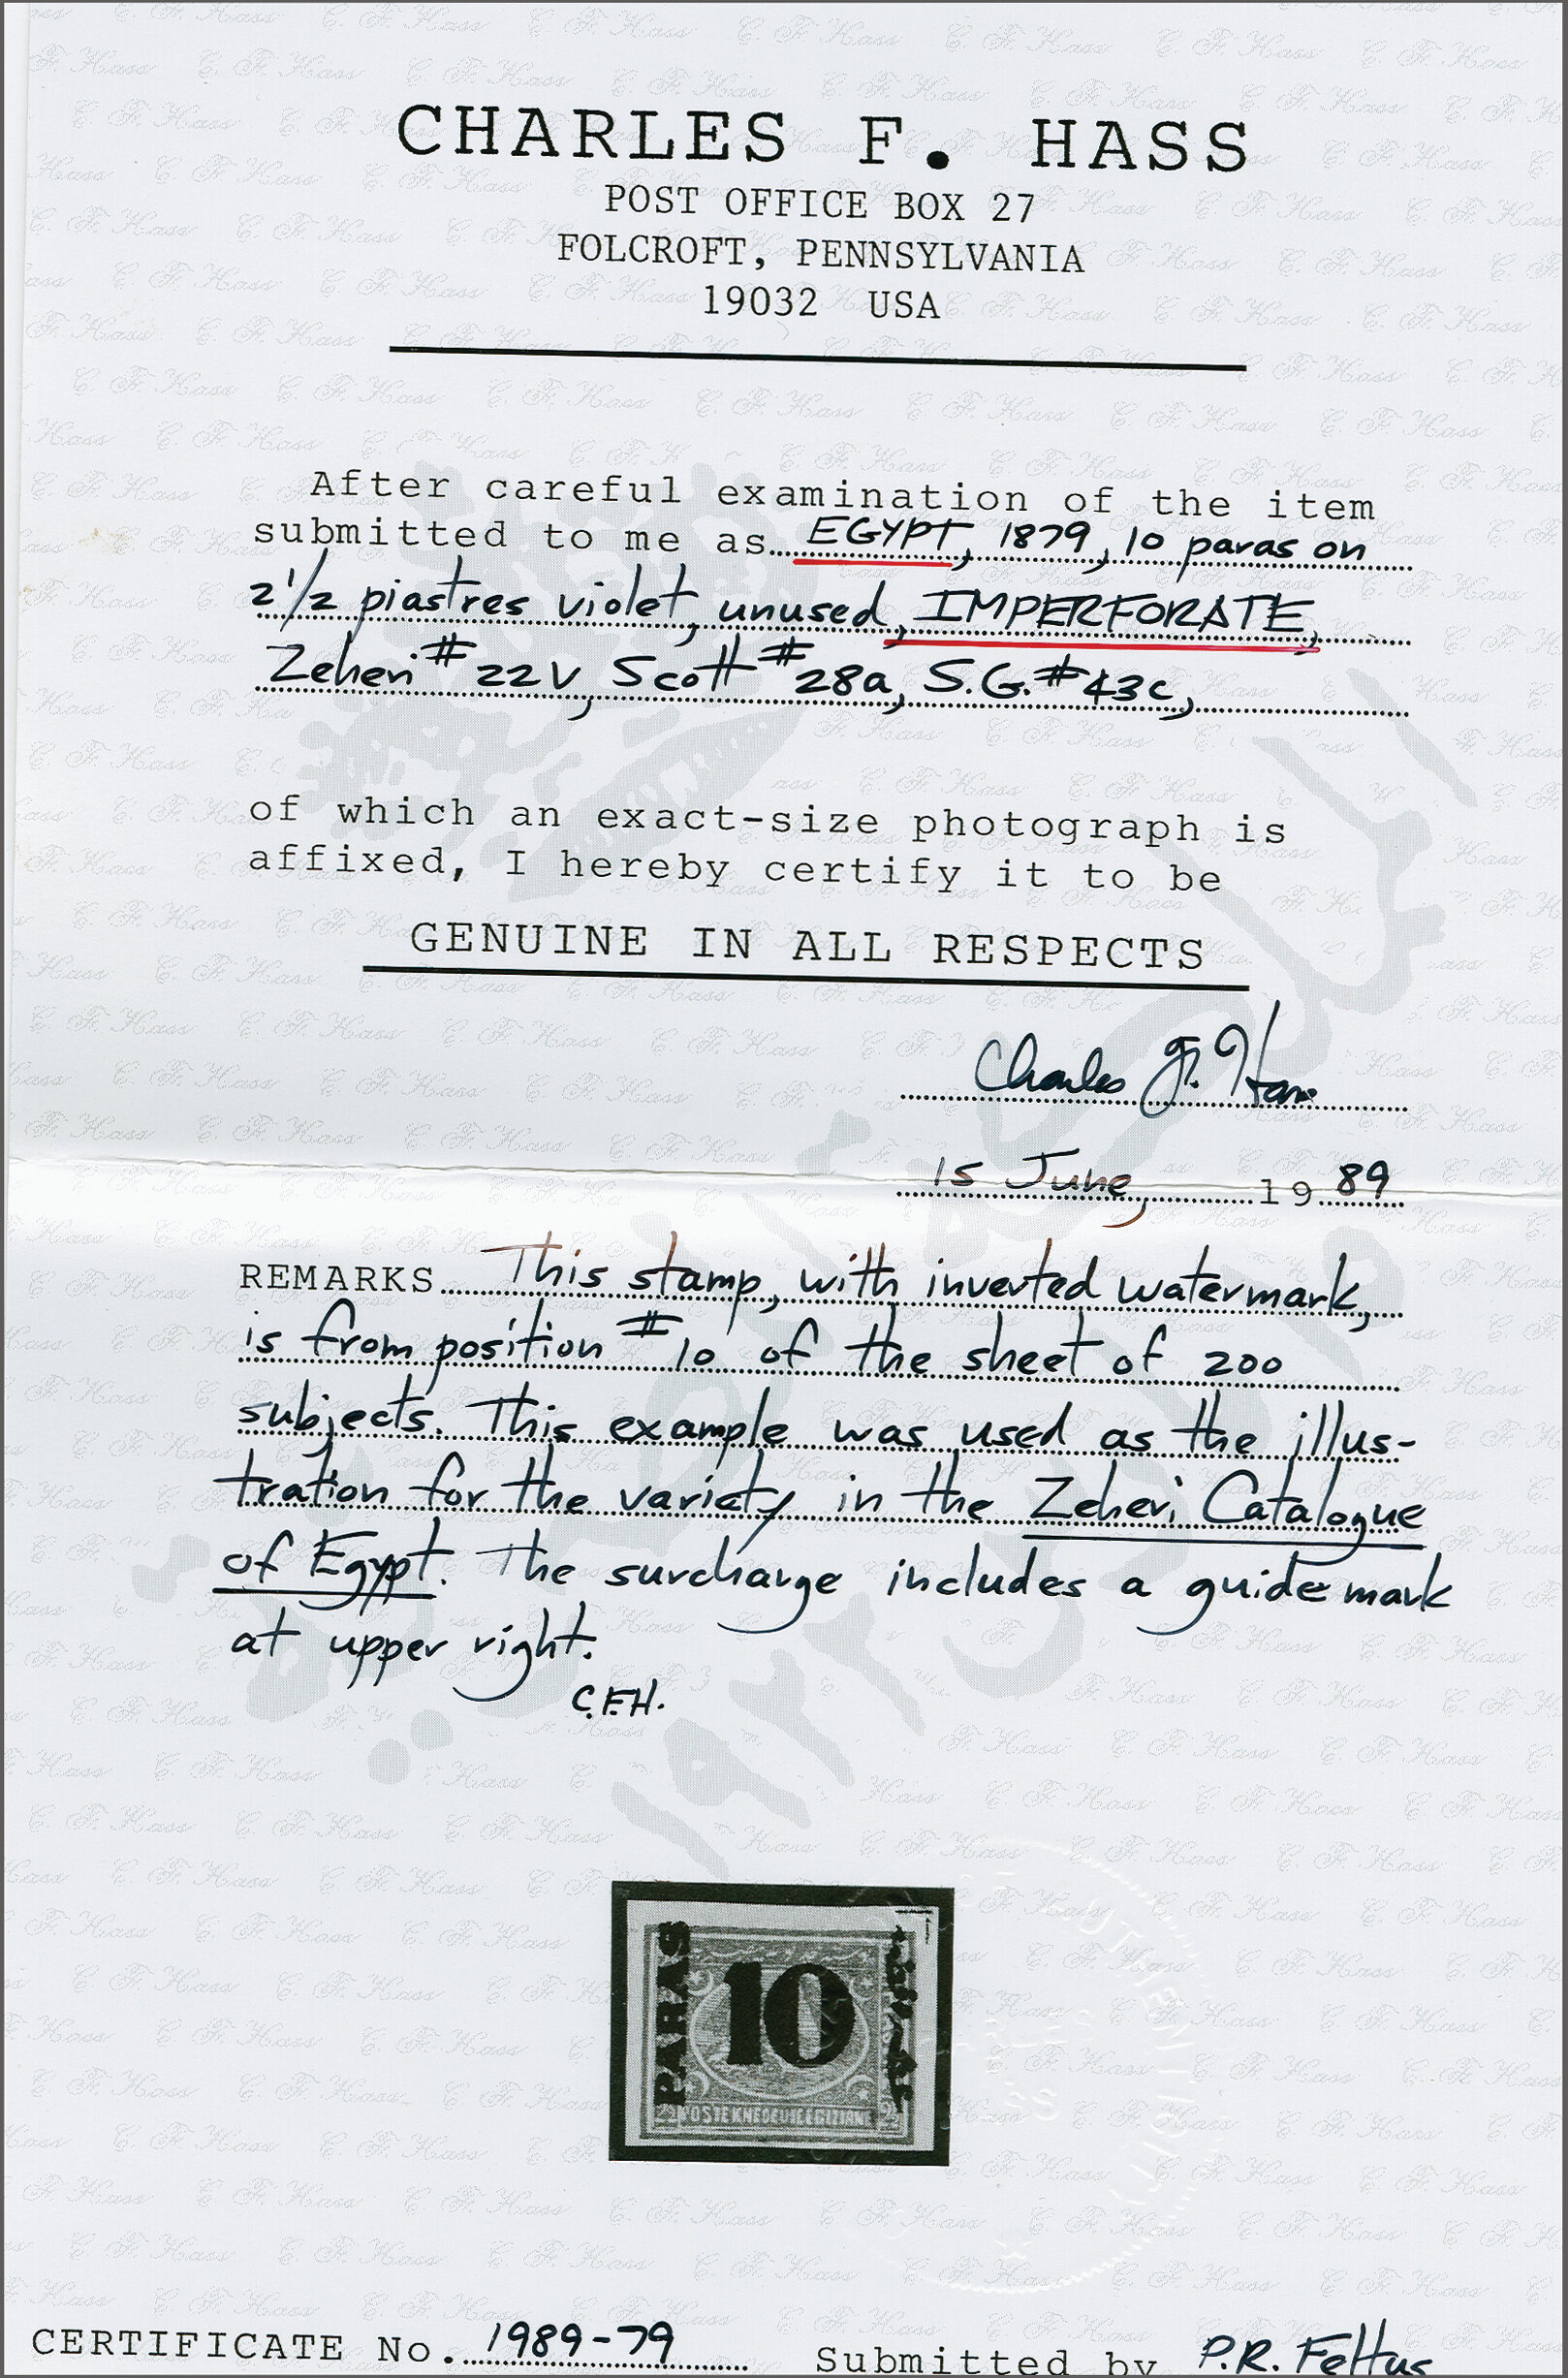 CHARLES F. HASS
POST OFFICE BOX 27
FOLCROFT, PENNSYLVANIA
19032 USA
After careful examination of the item
submitted to me as EGYPT, 1879, 10 paras on
2 1/2 piastres violet, unused, IMPERFORATE,
Zeheri #22V, Scott #28a, S.G. #43c,
of which an exact-size photograph is
affixed, I hereby certify it to be
GENUINE IN ALL RESPECTS
Charles F. Hass
15 June, 1989
REMARKS This stamp, with inverted watermark,
is from position #10 of the sheet of 200
subjects. This example was used as the illus-
tration for the variety in the Zeheri Catalogue
of Egypt. The surcharge includes a guide mark
at upper right.
C.F.H.
PARAS
10
CERTIFICATE No. 1989-79 Submitted by P.R. Feltus